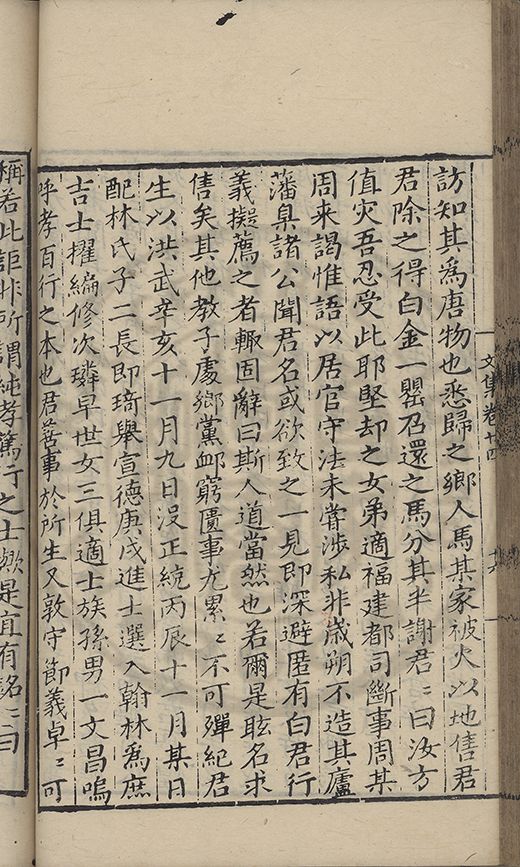 訪知其爲唐物也悉歸之鄉人馬某家被火以地售君
君除之得白金一甖召還之馬分其半謝君〻曰汝方
值灾吾忍受此耶堅却之女弟適福建都司斷事周某
周来謁惟語以居官守法未嘗渉私非歲朔不造其廬
藩臬諸公聞君名或欲致之一見即深避匿有白君行
義擬薦之者輙固辭曰斯人道當然也若爾是眩名求
售矣其他教子處鄉黨䘏窮匱事尤累〻不可殫紀君
生以洪武辛亥十一月九日没正統丙辰十一月某日
配林氏子二長即琦舉宣德庚戌進士選入翰林爲庶
吉士擢編修次璘早世女三俱適士族孫男一文昌嗚
呼孝百行之本也君善事於所生又敦守節義卓〻可
稱若此詎非所謂純孝篤行之士歟是宜有銘〻曰
文集卷十四
十六